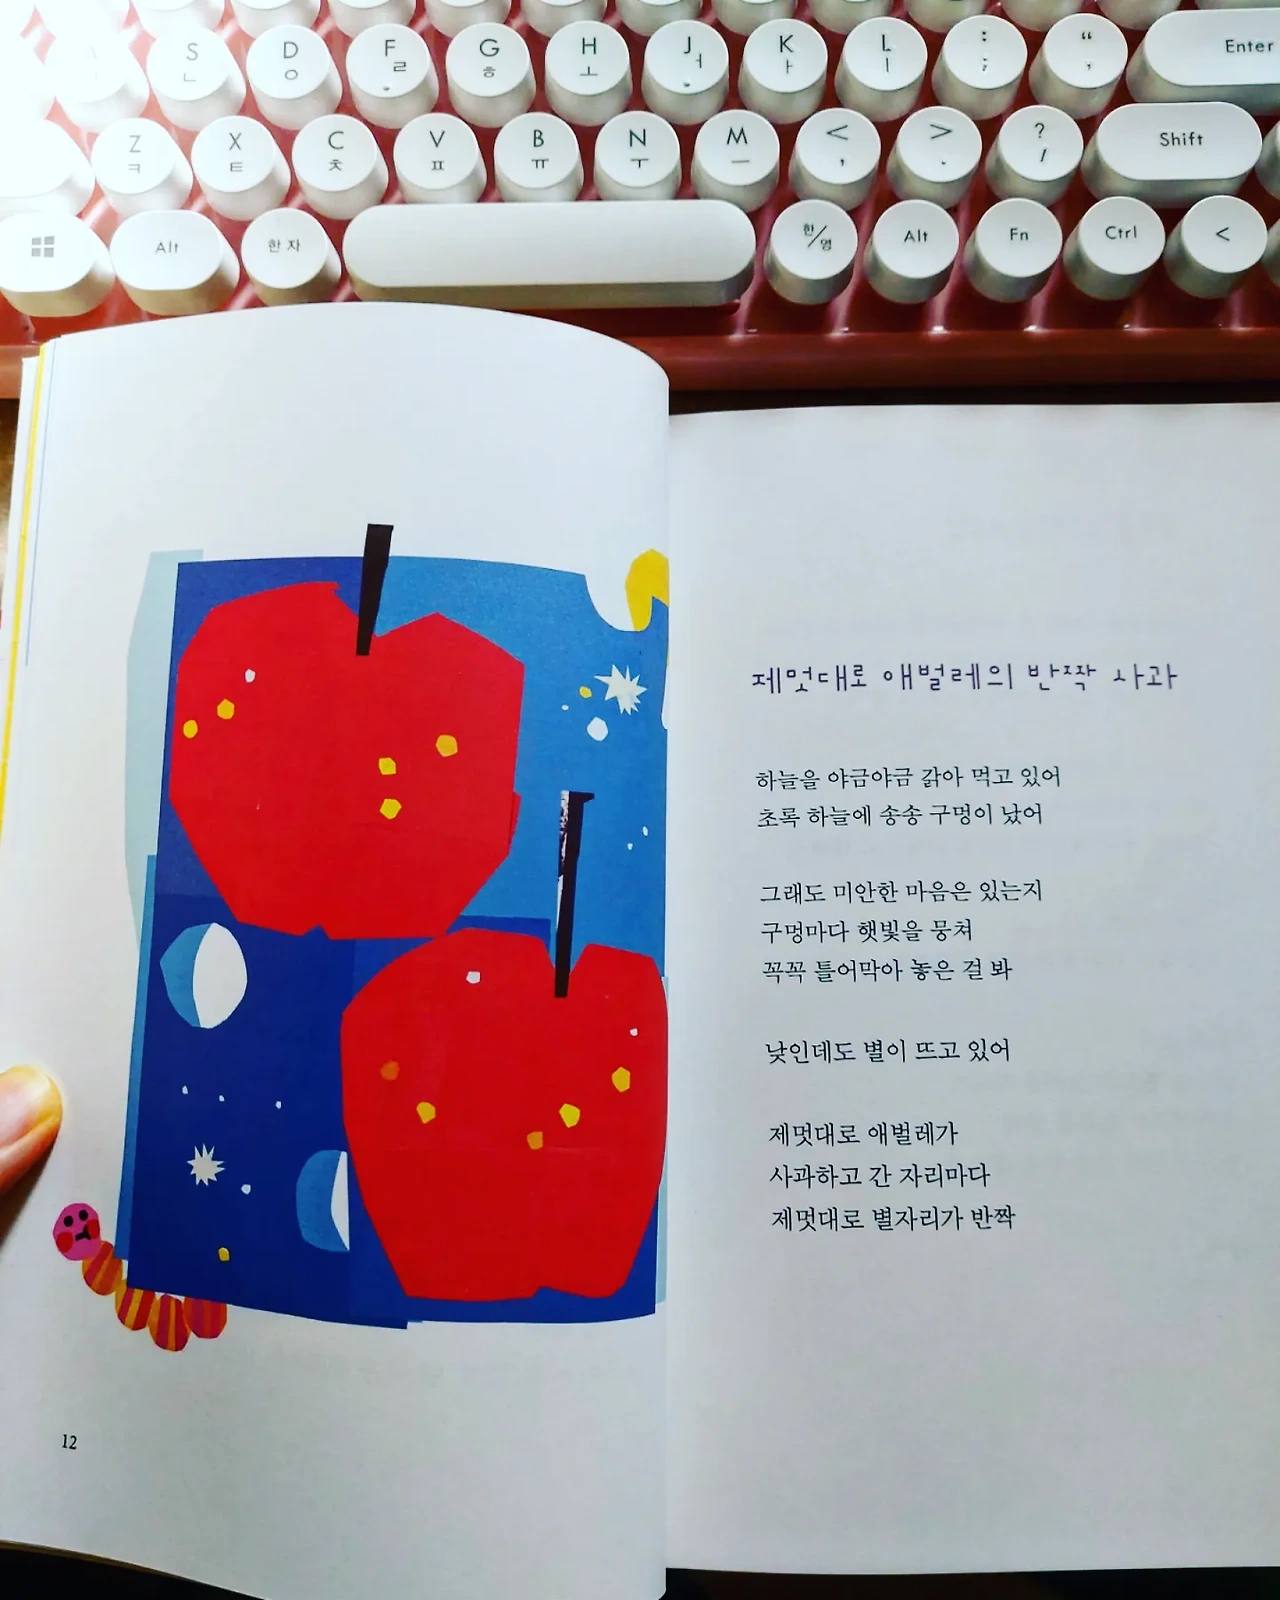 S ㄴ
D ㅇ
F ㄹ
G ㅎ
H ㅗ
J ㅓ
K ㅏ
L ㅣ
: ;
“ ‘
Enter
Z ㅋ
X ㅌ
C ㅊ
V ㅍ
B ㅠ
N ㅜ
M ㅡ
< ,
> .
? /
Shift
Alt
한자
한/영
Alt
Fn
Ctrl
<
제멋대로 애벌레의 반짝 사과
하늘을 야금야금 갉아 먹고 있어
초록 하늘에 송송 구멍이 났어
그래도 미안한 마음은 있는지
구멍마다 햇빛을 뭉쳐
꼭꼭 틀어막아 놓은 걸 봐
낮인데도 별이 뜨고 있어
제멋대로 애벌레가
사과하고 간 자리마다
제멋대로 별자리가 반짝
12